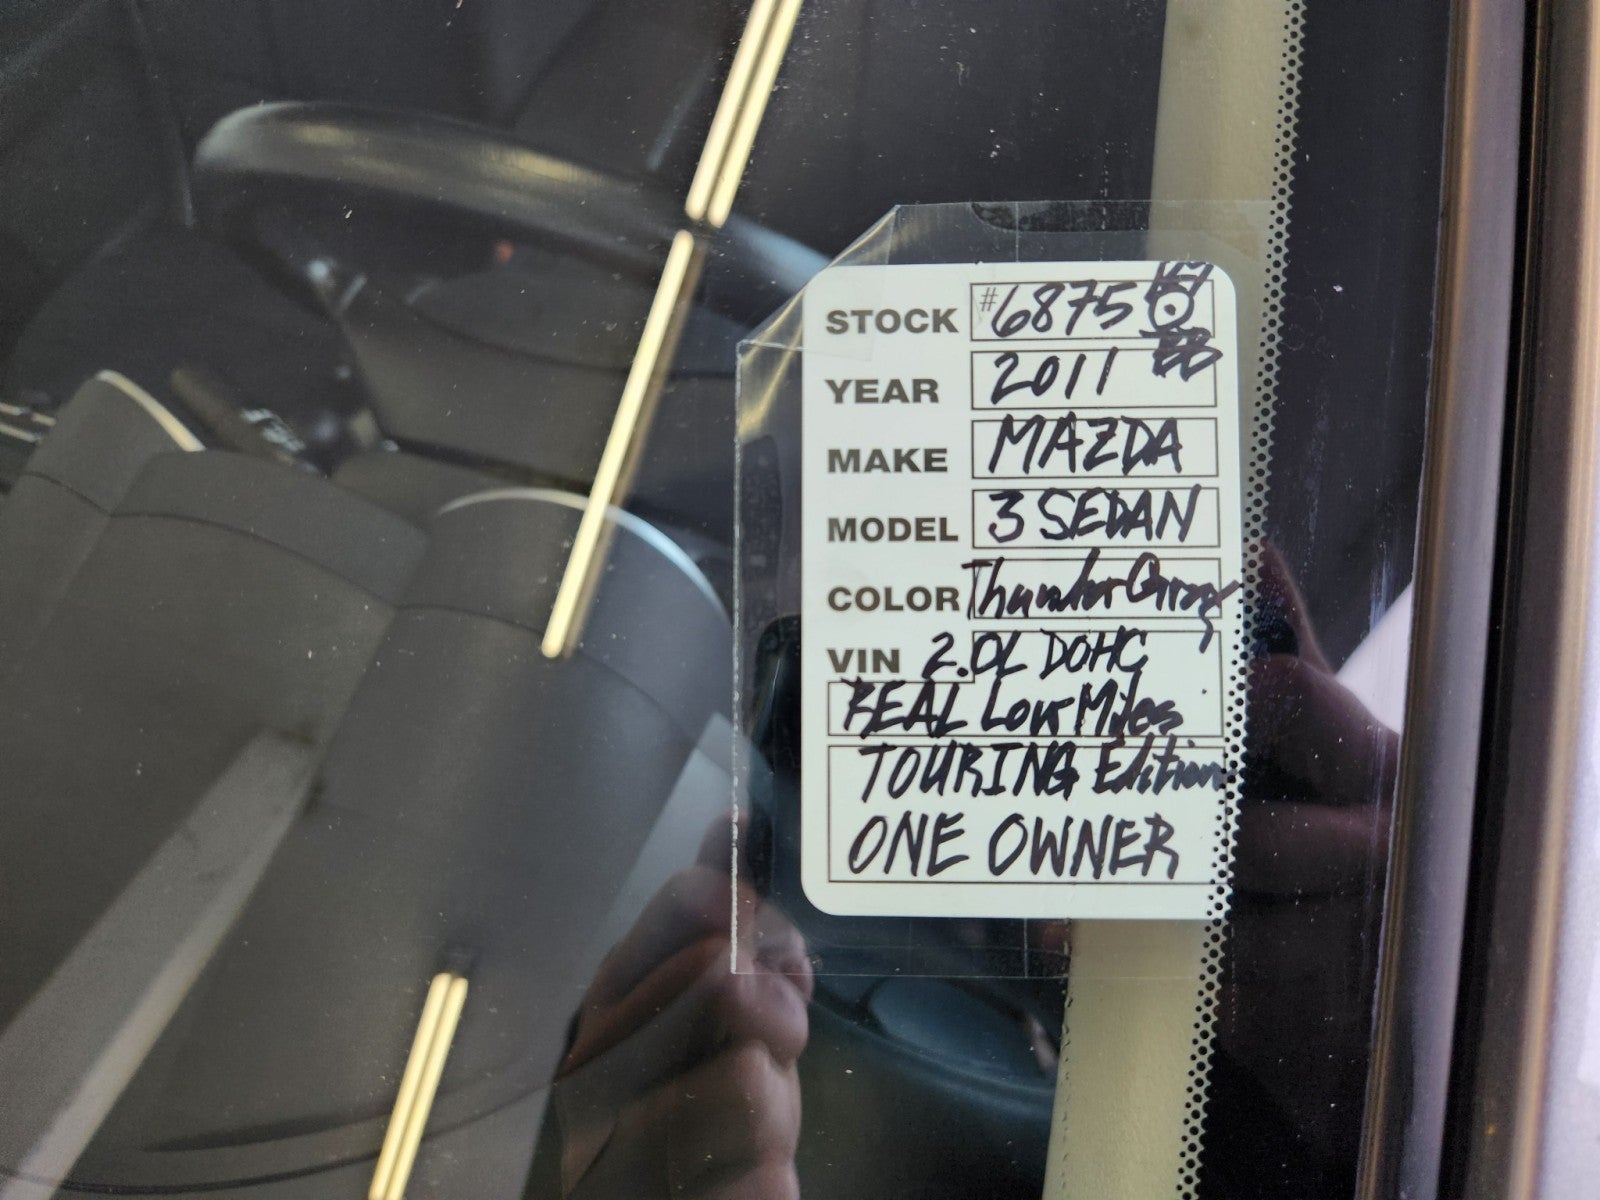 STOCK #6875
YEAR 2011
MAKE MAZDA
MODEL 3 SEDAN
COLOR Thunder Gray
VIN 2.0L DOHC
REAL Low Miles
TOURING Edition
ONE OWNER